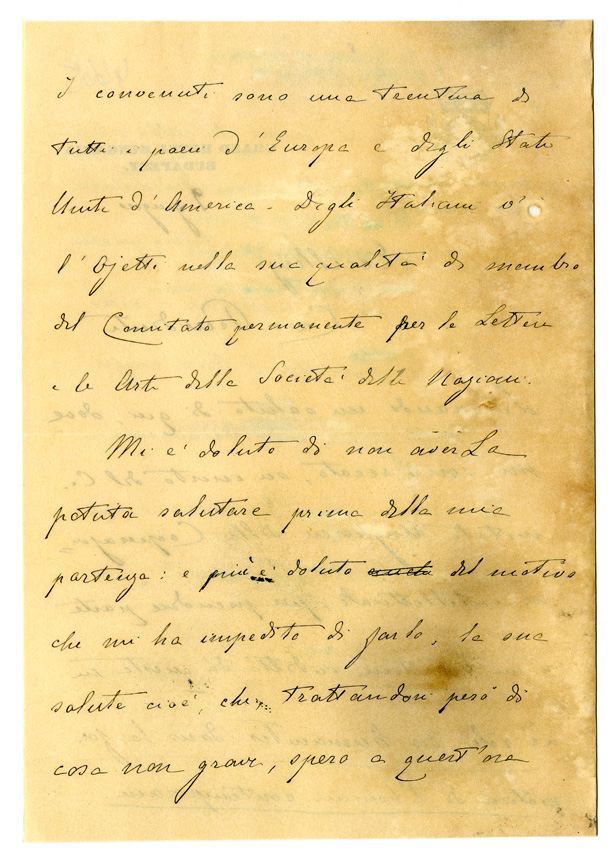 I convenuti sono una trentina di
tutti i paesi d'Europa e degli Stati
Uniti d'America. Degli Italiani v'è
l'Ojetti nella sua qualità di membro
del Comitato permanente per le Lettere
e le Arti della Società delle Nazioni.
Mi è doluto di non averLa
potuta salutare prima della mia
partenza: e più è doluto del motivo
che mi ha impedito di farlo, la sua
salute cioè, che, trattandosi però di
cosa non grave, spero a quest'ora